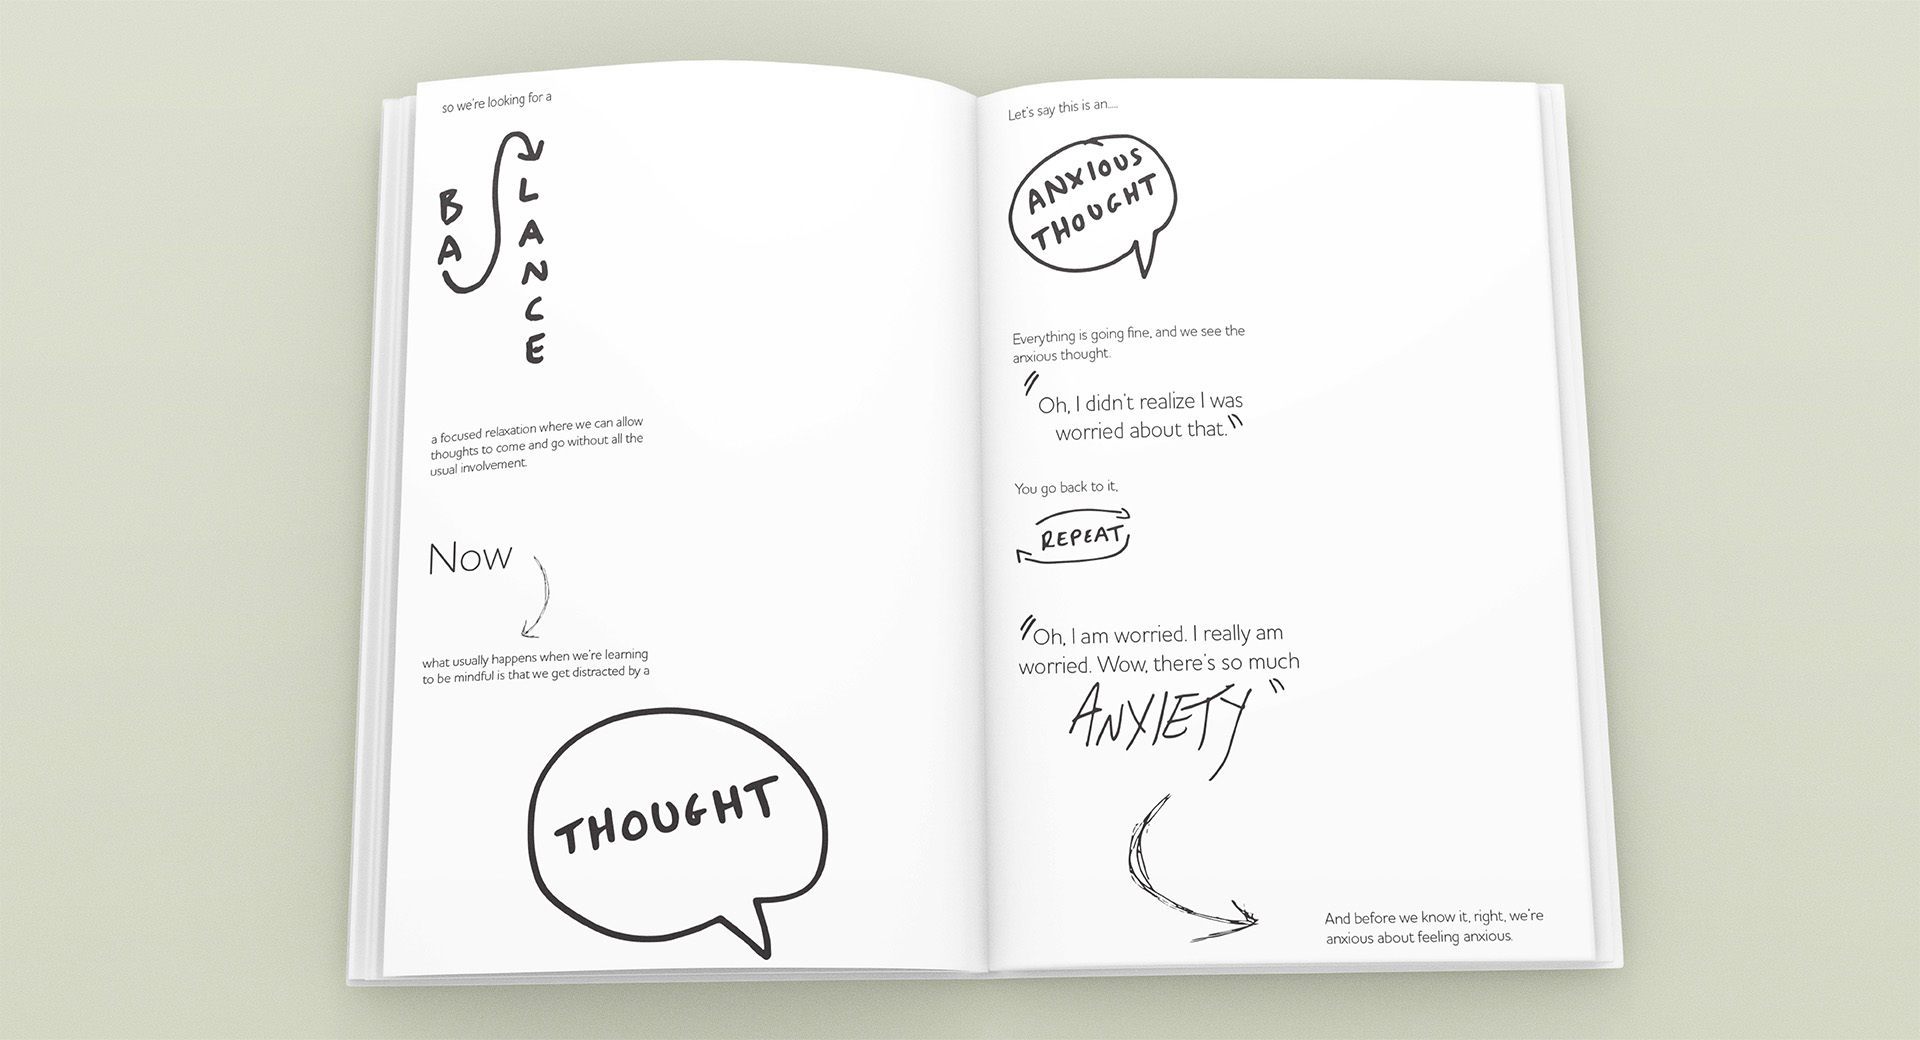 so we're looking for a
BA
LANCE
a focused relaxation where we can allow
thoughts to come and go without all the
usual involvement.
Now
what usually happens when we're learning
to be mindful is that we get distracted by a
THOUGHT
Let's say this is an....
ANXIOUS
THOUGHT
Everything is going fine, and we see the
anxious thought.
"Oh, I didn't realize I was
worried about that."
You go back to it,
REPEAT
"Oh, I am worried. I really am
worried. Wow, there's so much
ANXIETY"
And before we know it, right, we're
anxious about feeling anxious.